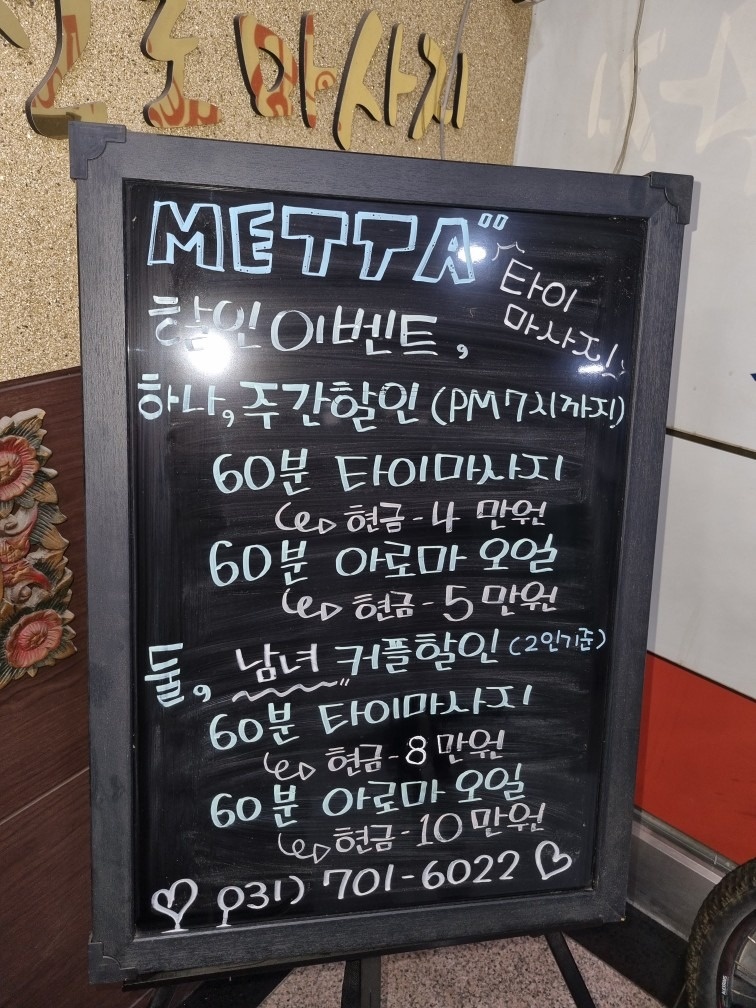 마사지
METTA"
타이
마사지
할인이벤트,
하나, 주간할인 (PM 7시까지)
60분 타이마사지
현금-4 만원
60분 아로마 오일
현금-5만원
둘, 남녀 커플할인 (2인기준)
60분 타이마사지
현금-8만원
60분 아로마오일
현금-10만원
031) 701-6022